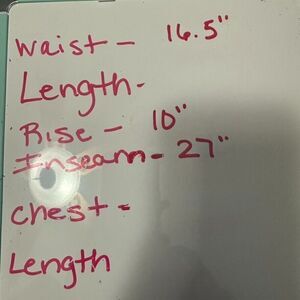 Waist - 16.5"
Length -
Rise - 10"
Inseam - 27"
Chest -
Length